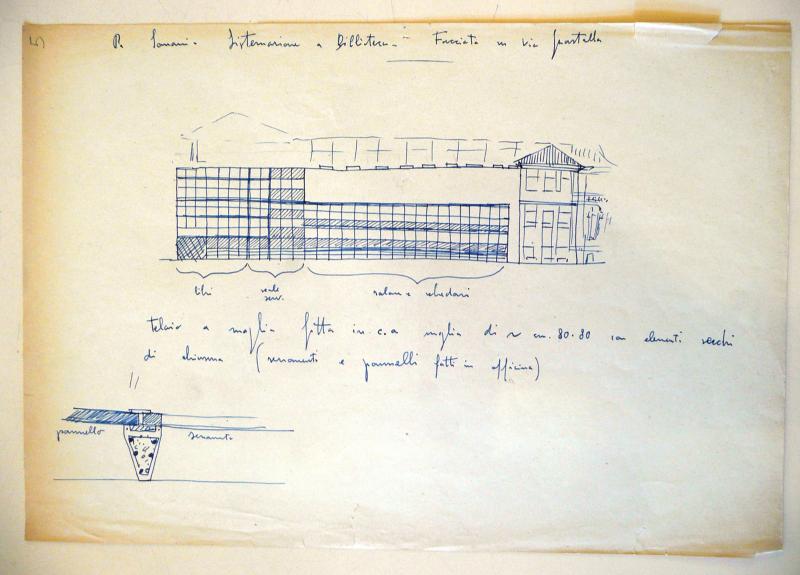 Sistemazione a Biblioteca - Facciata in via
libri
scale
serv.
salone e schedari
telaio a maglia fitta in c.a maglia di ~ cm. 80.80 con elementi
di chiusura (serramenti e pannelli fatti in officina)
pannello
serramento